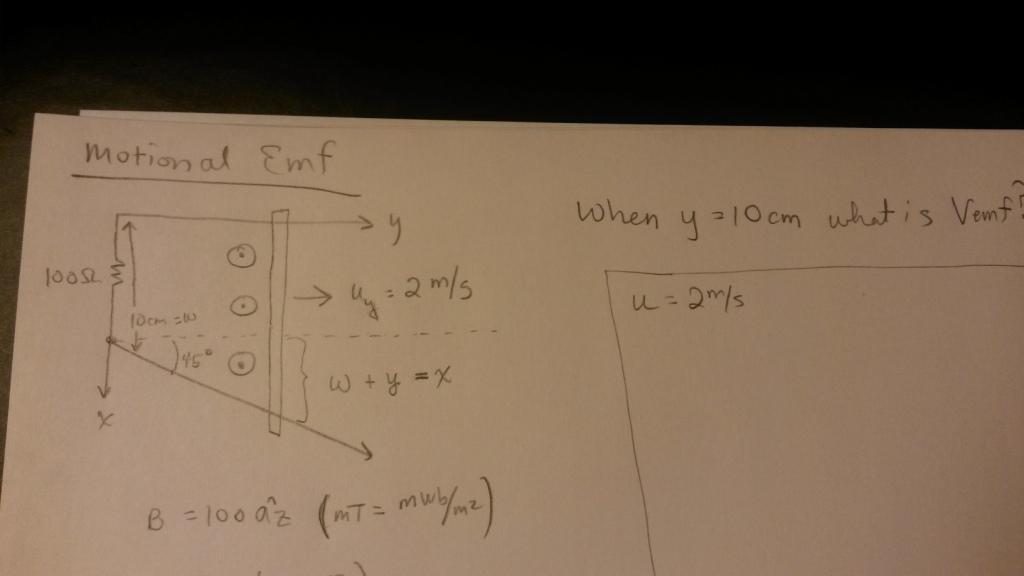 Motional Emf
y
100Ω
u_y = 2 m/s
10cm = w
45°
w + y = x
x
B = 100 âz (mT = mWb/m²)
When y = 10 cm what is Vemf?
u = 2 m/s